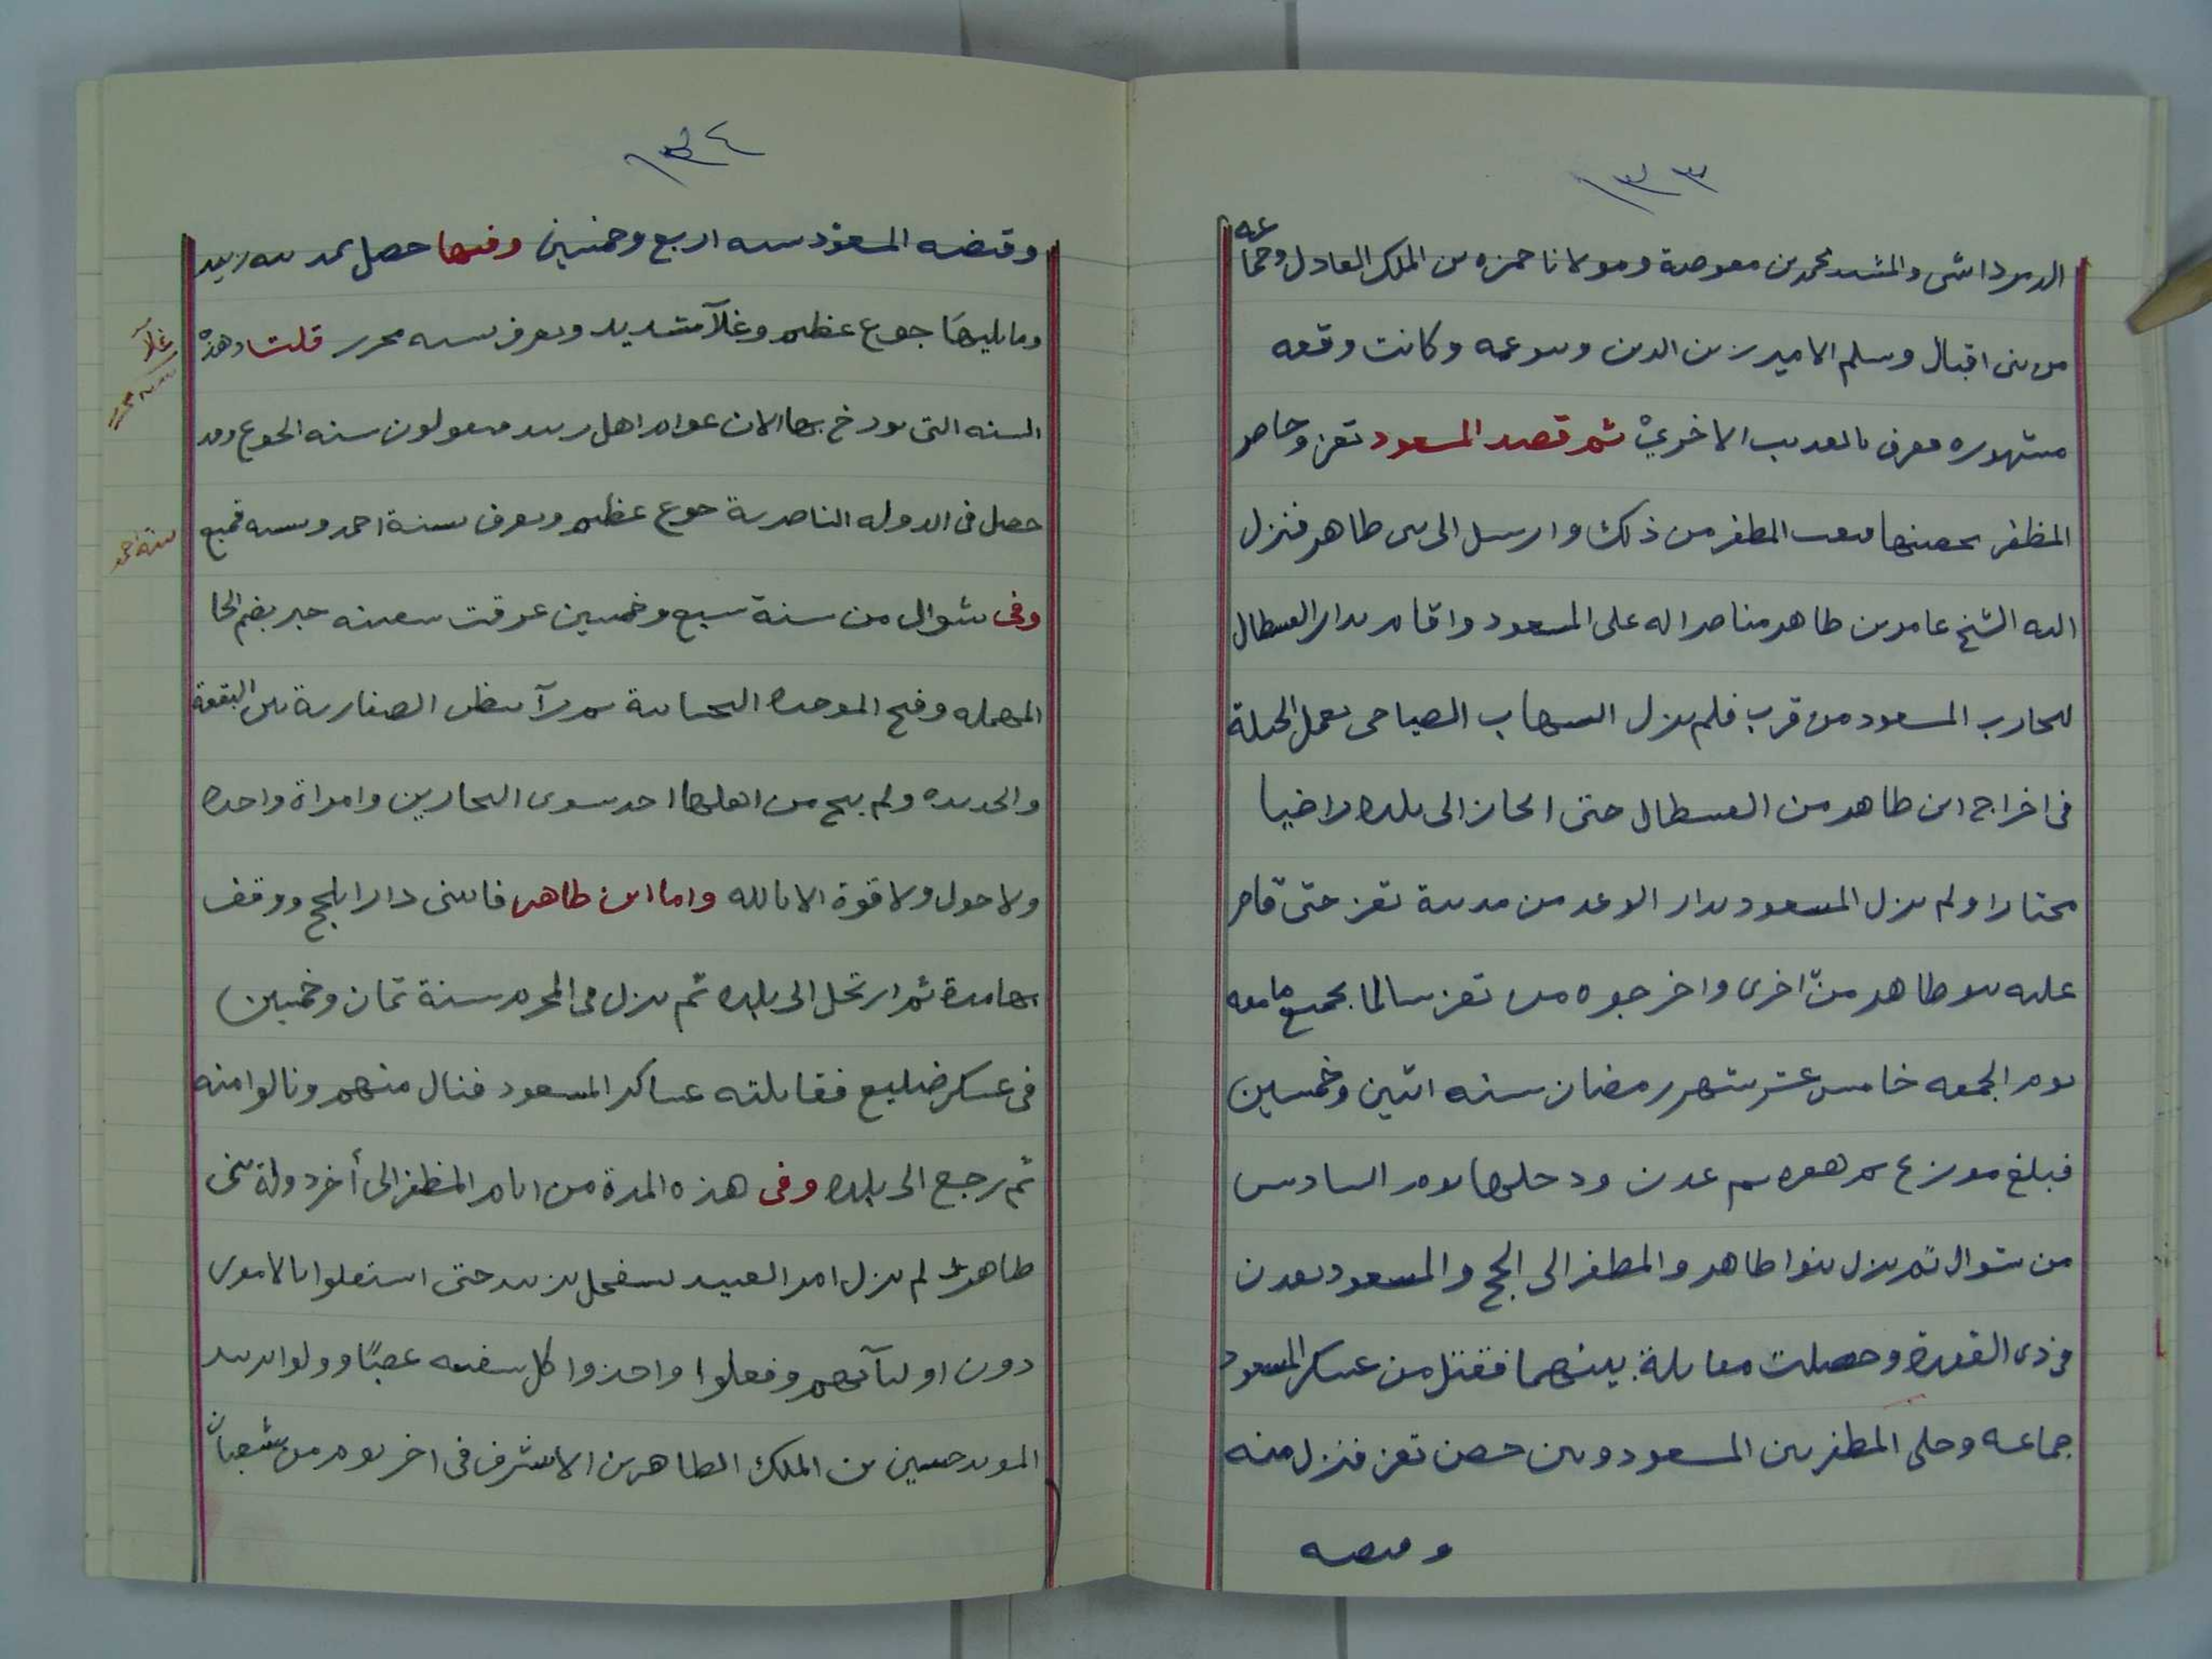 ١٣٣
الدمرداشى والمشد محمد بن معوضة ومولانا حمزه بن الملك العادل وجماعه
من بنى اقبال وسلم الامير زين الدين وبنو عمه وكانت وقعه
مشهوره تعرف بالعديب الاخرى ثم قصد المسعود تعز وحاصر
المظفر بحصنها فتعب المظفر من ذلك وارسل الى بنى طاهر فنزل
اليه الشيخ عامر بن طاهر مناصرا له على المسعود واقام بدار القسطال
ليحارب المسعود من قرب فلم يزل الشهاب الصباحى يعمل الحيلة
فى اخراج ابن طاهر من القسطال حتى انحاز الى بلده راضيا
مختارا ولم يزل المسعود بدار الوعد من مدينة تعز حتى قام
عليه بنو طاهر مرة اخرى واخرجوه من تعز سالما بجميع ما معه
يوم الجمعه خامس عشر شهر رمضان سنه اثنين وخمسين
فبلغ موزع ثم هقره ثم عدن ودخلها يوم السادس
من شوال ثم نزل بنوا طاهر والمظفر الى لحج والمسعود بعدن
فى ذى القعدة وحصلت مقابلة بينهما فقتل من عسكر المسعود
جماعه وخلى المظفر بين المسعود وبين حصن تعز فنزل منه
وقبضه
١٣٤
وقبضه المسعود سنه اربع وخمسين وفيها حصل بمدينه زبيد
وما يليها جوع عظيم وغلآ شديد ويعرف بسنه محرر قلت وهذه
السنه التى يورخ بها الان عوام اهل زبيد فيقولون سنه الجوع وقد
حصل فى الدوله الناصرية جوع عظيم ويعرف بسنة احمد وسنه قميع
وفى شوال من سنة سبع وخمسين غرقت سفينه حبر بضم الحا
المهمله وفتح الموحده التحتانية ثم رآ بنظر الصفارية بين البقعة
والحديده ولم ينج من اهلها احد سوى البحارين وامراة واحده
ولا حول ولا قوة الا بالله واما ابن طاهر فابتنى دارا بلحج ووقف
بها مدة ثم ارتحل الى بلده ثم نزل فى المحرم سنة ثمان وخمسين
فى عسكر ضليع فقابلته عساكر المسعود فنال منهم ونالوا منه
ثم رجع الى بلده وفى هذه المدة من ايام المظفر الى أخر دولة بنى
طاهر لم يزل امر العبيد يستفحل بزبيد حتى استقلوا بالامور
دون اوليآئهم وفعلوا واخذوا كل سفينه غصبًا وولوا بزبيد
المويد حسين بن الملك الطاهر بن الاشرف فى اخر يوم من شعبان
غلآ
سنة احمد